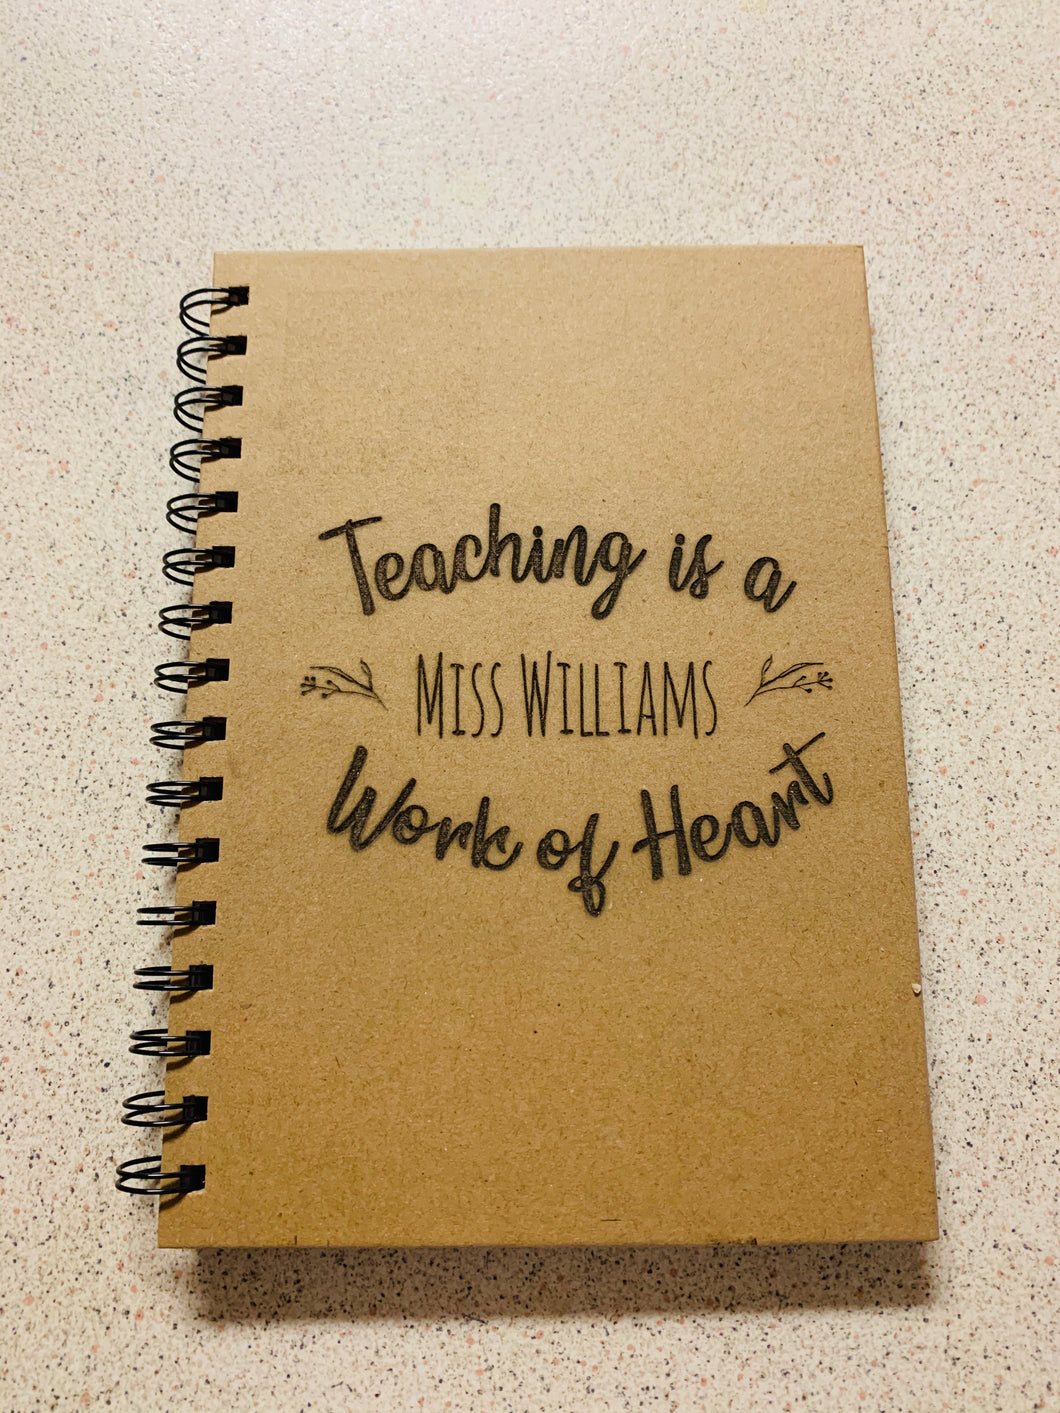 Teaching is a
Miss Williams
Work of Heart